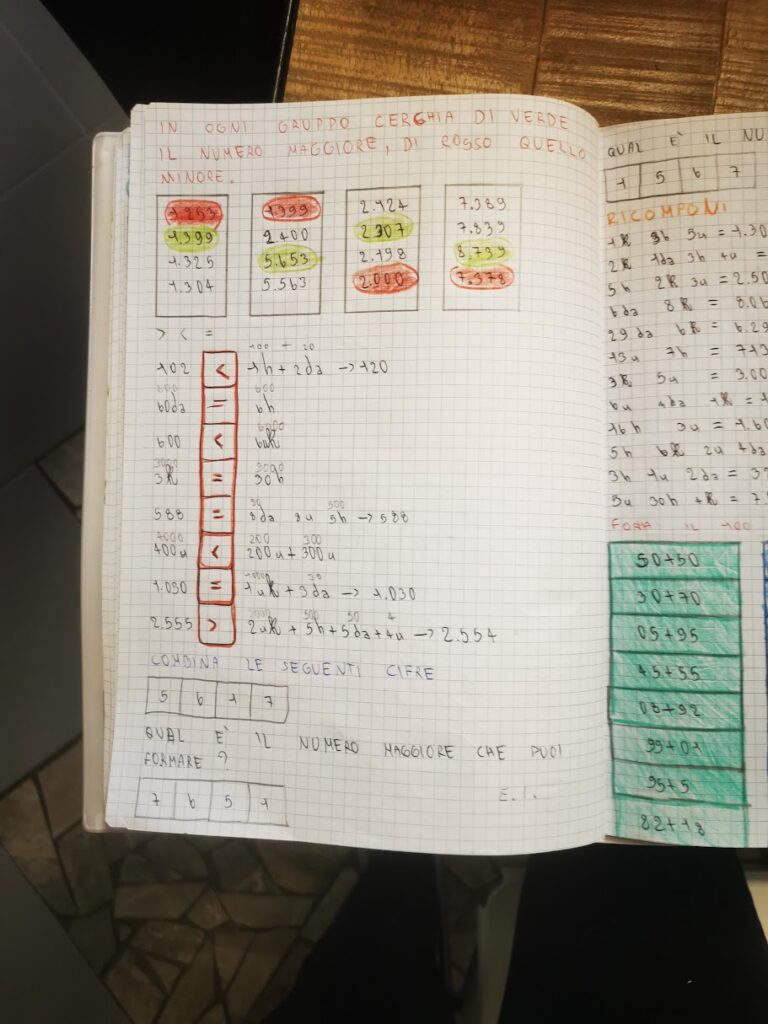 IN OGNI GRUPPO CERCHIA DI VERDE
IL NUMERO MAGGIORE, DI ROSSO QUELLO
MINORE.
1.253 1.399 2.124 7.389
1.399 2.400 2.307 7.839
1.325 5.653 2.198 8.739
1.304 5.563 2.000 7.378
> < =
100 + 20
102 < 1h + 2da → 120
600 600
60da = 6h
6000
600 < 6uk
3000 3000
3k = 30h
80 500
588 = 8da 8u 5h → 588
4000 200 300
400u < 200u + 300u
1000 30
1.030 = 1uk + 3da → 1.030
2000 500 50 4
2.555 > 2uk + 5h + 5da + 4u → 2.554
COMBINA LE SEGUENTI CIFRE
5 6 1 7
QUAL E' IL NUMERO MAGGIORE CHE PUOI
FORMARE?
7 6 5 1
E.I.
QUAL E' IL NU
1 5 6 7
RICOMPONI
1k 3h 5u = 1.30
2k 1da 3h 4u =
5h 2k 3u = 2.50
6da 8k = 8.06
29da 6k = 6.29
13u 7h = 713
3k 5u = 3.00
6u 4da 1k = 1
16h 3u = 1.60
5h 6k 2u 4da
3h 1u 2da = 32
5u 30h 4k = 7.
FORMA IL 100
50+50
30+70
05+95
45+55
08+92
99+01
95+5
82+18